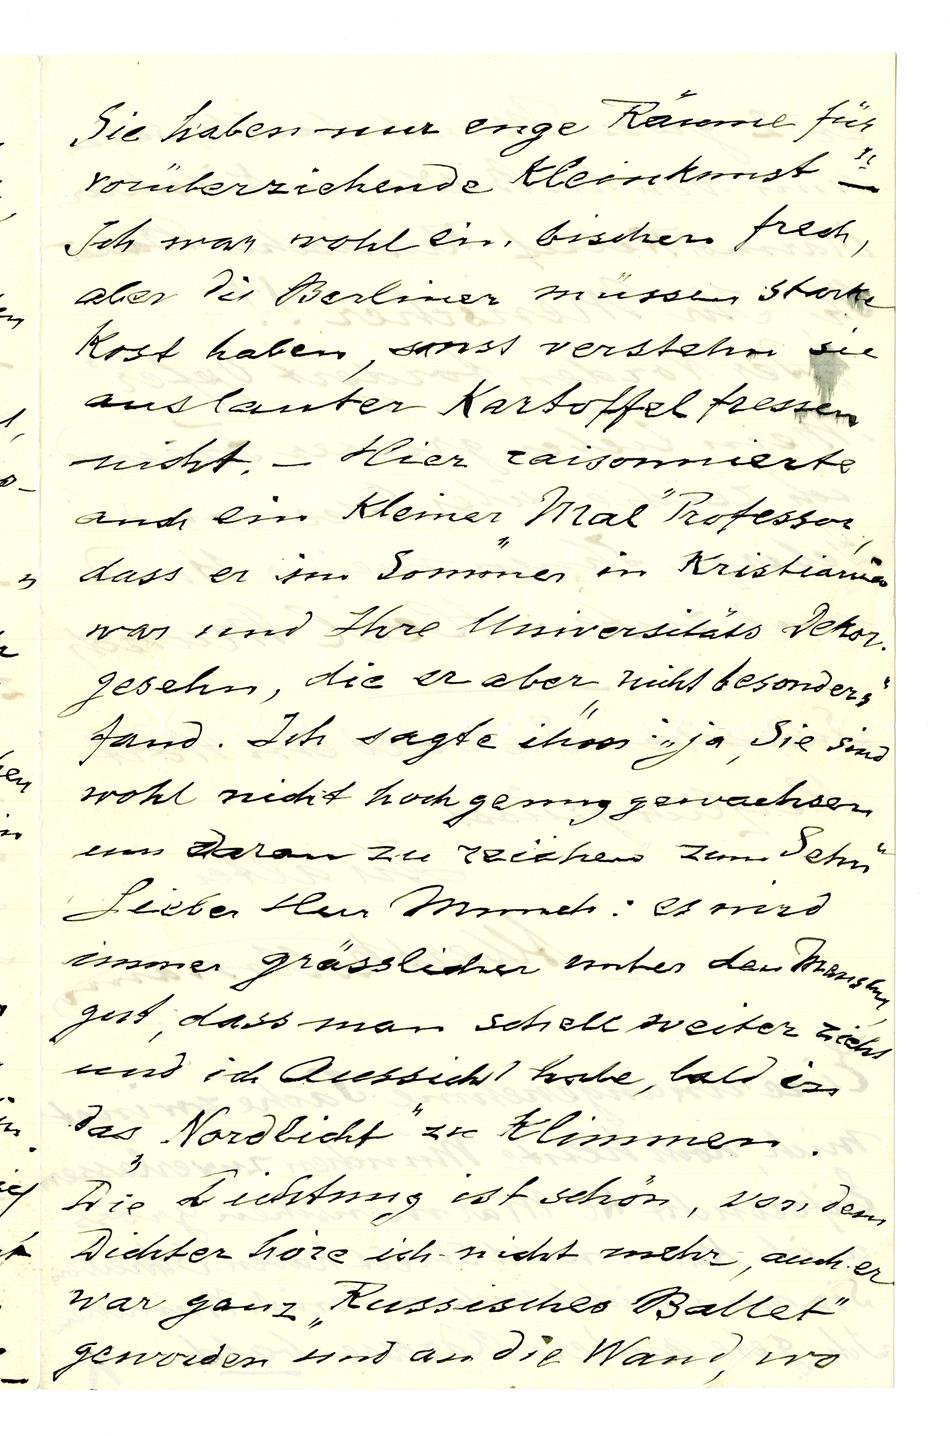 Sie haben nur enge Räume für
vorüberziehende Kleinkunst"
Ich war wohl ein bischen frech,
aber die Berliner müssen starke
Kost haben, sonst verstehn sie
auslauter Kartoffel fressen
nicht. – Hier raisonnierte
auch ein kleiner „Mal" Professor,
dass er im Sommer in Kristiania
war und Ihre Universitäts Dekor.
gesehn, die er aber nicht besonders"
fand. Ich sagte ihm: „ja, Sie sind
wohl nicht hoch genug gewachsen
um daran zu reichen zum Sehn"
Lieber Herr Munch: es wird
immer grässlicher unter den Menschen,
gut, dass man schell weiter zieht
und ich Aussicht habe, bald in
das „Nordlicht" zu klimmen.
Die Dichtung ist schön, von dem
Dichter höre ich nicht mehr, auch er
war ganz „Russisches Ballet"
geworden und an die Wand, wo